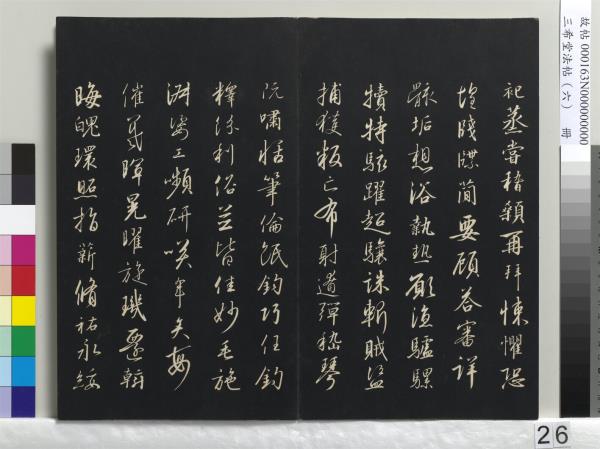 祀蒸嘗稽顙再拜悚懼恐
惶牋牒簡要顧荅審詳
骸垢想浴執熱願涼驢騾
犢特駭躍超驤誅斬賊盜
捕獲叛亡布射遼彈嵇琴
阮嘯恬筆倫紙鈞巧任釣
釋紛利俗並皆佳妙毛施
淑姿工嚬研咲年矢每
催羲暉晃曜旋璣懸斡
晦魄環照指薪脩祜永綏
故帖 000163N000000000
三希堂法帖（六） 冊
26